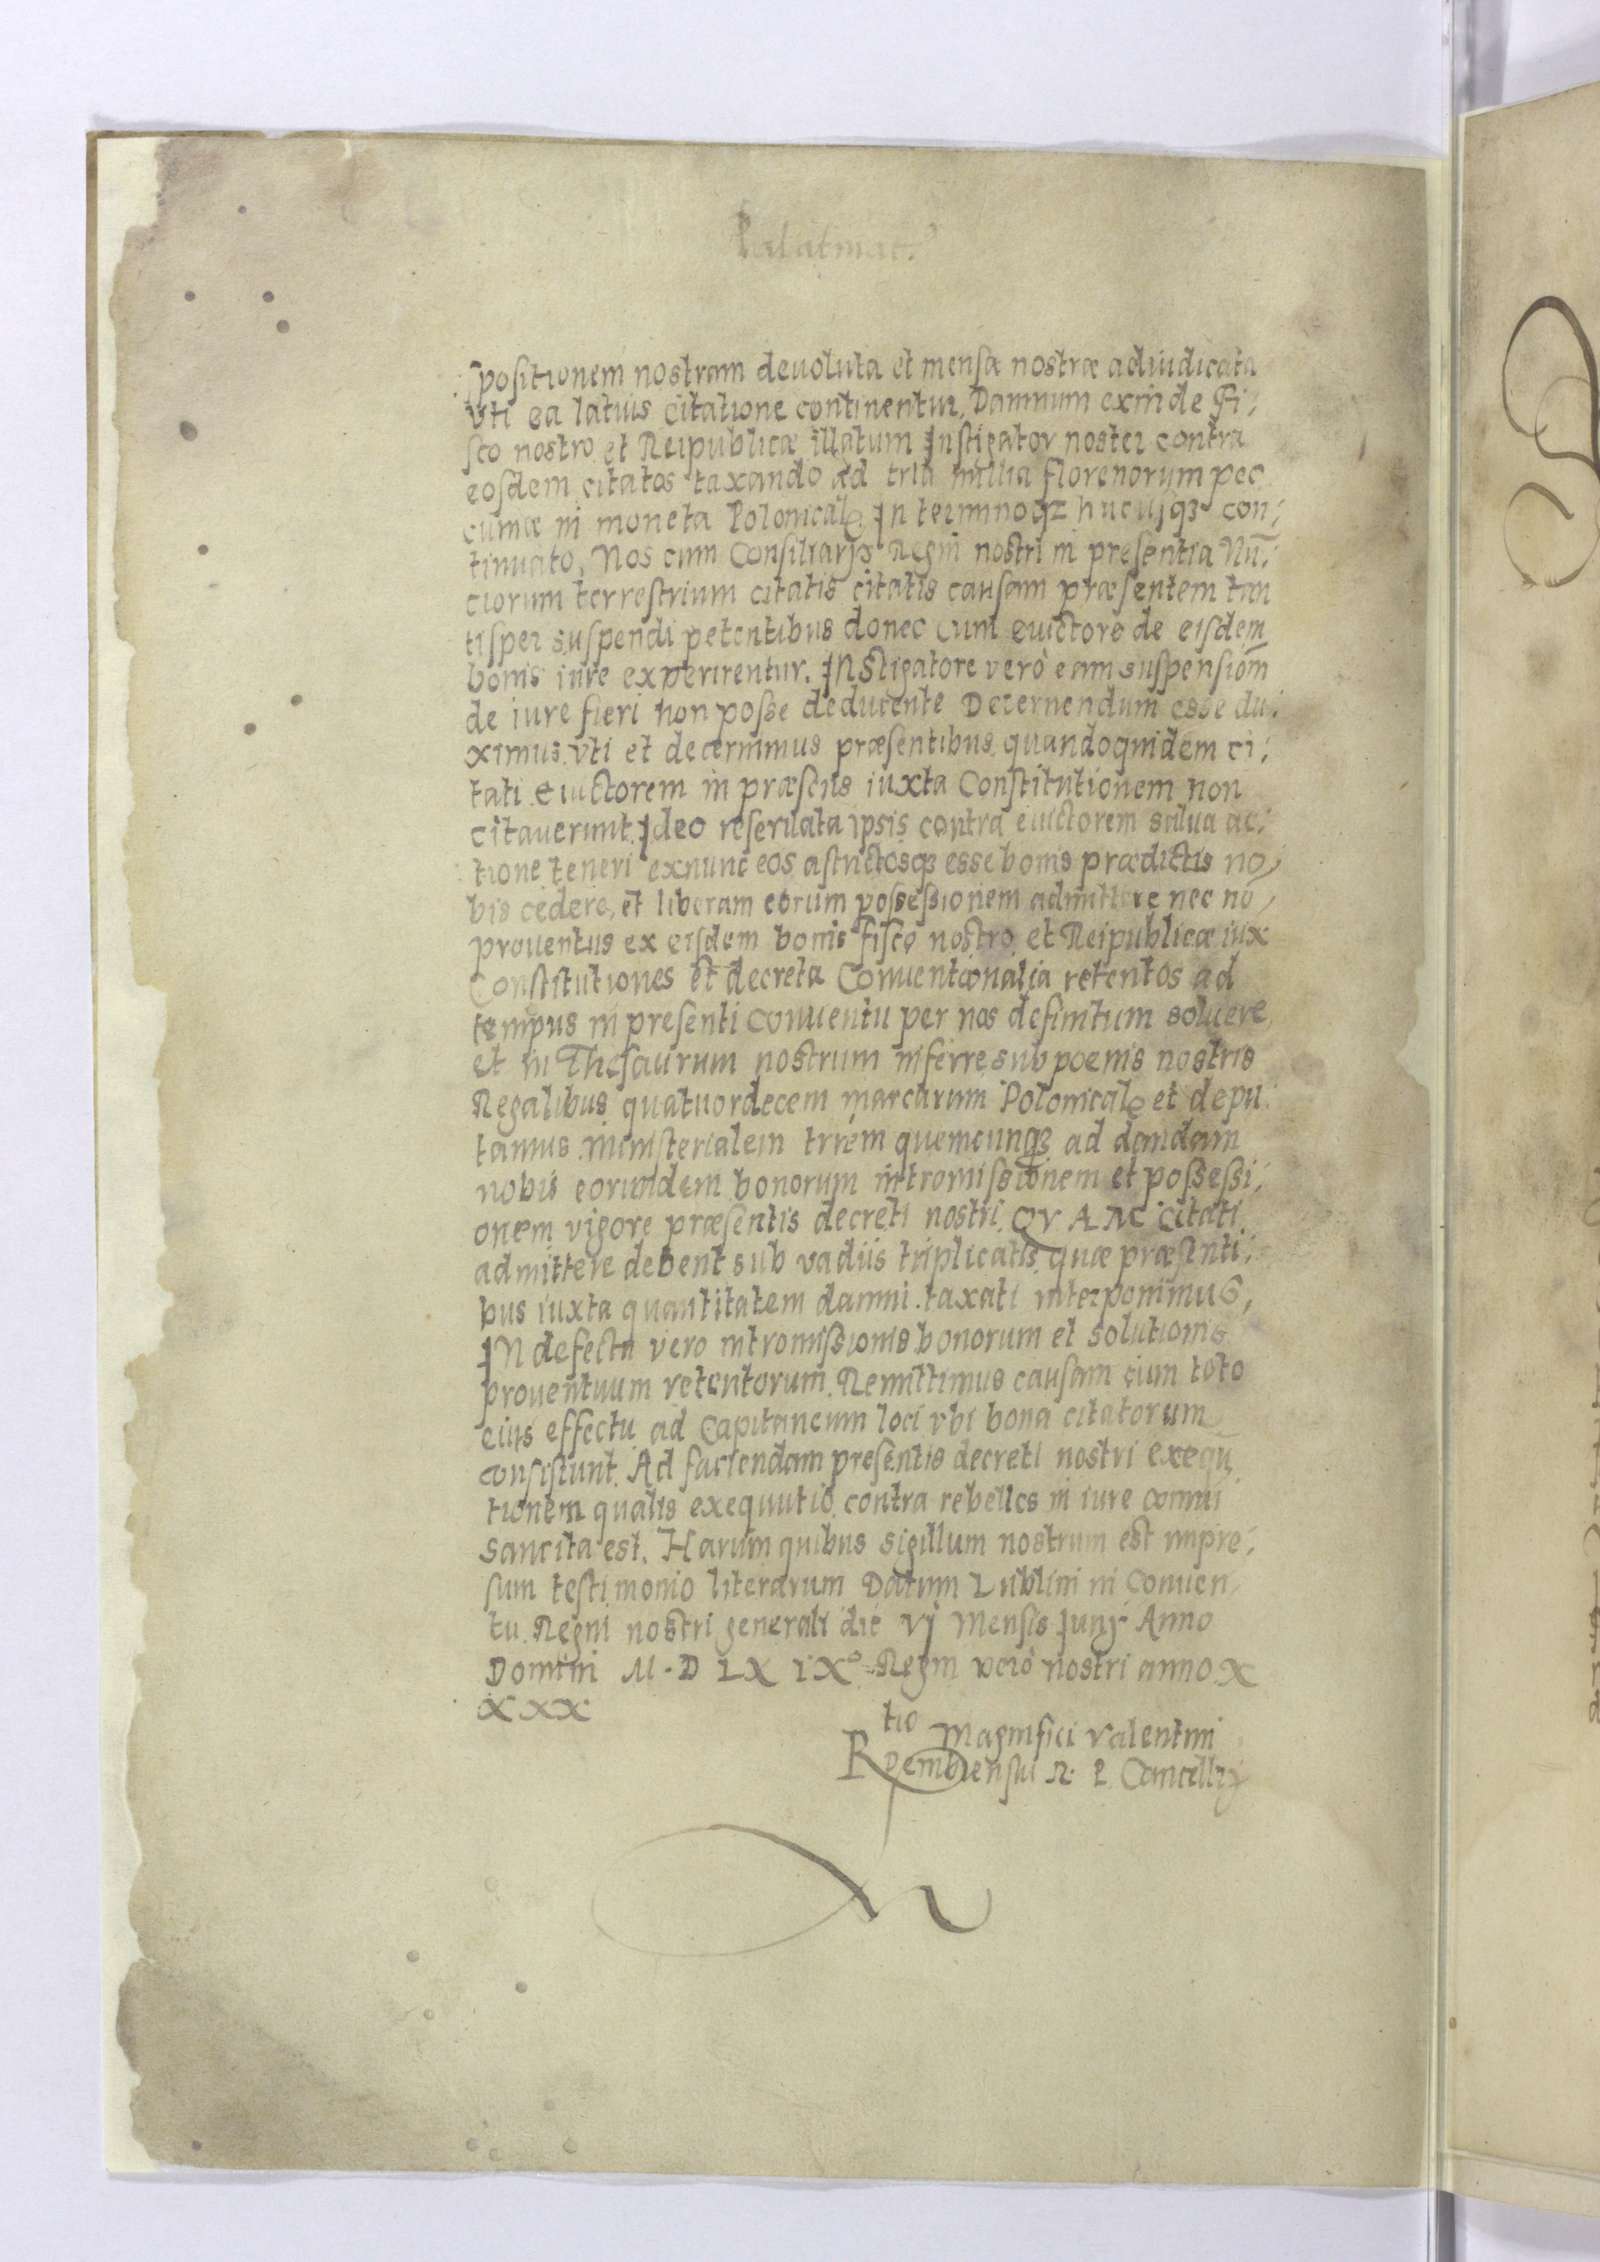 Palatinat:
positionem nostram deuoluta et mensæ nostræ adiudicata
vti ea latius citatione continentur, Damnum exinde Fi:
sco nostro et Reipublicæ illatum Instigator noster contra
eosdem citatos taxando ad tria millia florenorum pec
cuniæ in moneta Polonical In terminoqz hucusqz con:
tinuato, Nos cum Consiliarijs Regni nostri in presentia Nū:
ciorum terrestrium citatis citatis causam præsentem tan
tisper suspendi petentibus donec cum euictore de eisdem
bonis iure experirentur. Instigatore verò eam suspensiōm
de iure fieri non posse deducente Decernendum esse du:
ximus vti et decernimus præsentibus quandoquidem ci:
tati euictorem in præsens iuxta Constitutionem non
citauerunt, Ideo reseruata ipsis contra euictorem salua ac:
tione teneri exnunc eos astrictosqz esse bonis prædictis no
bis cedere, et liberam eorum possessionem admittere nec nō
prouentus ex eisdem bonis fisco nostro et Reipublicæ iux
Constitutiones et decreta Conuentionalia retentos ad
tempus in presenti conuentu per nos definitum soluere
et in Thesaurum nostrum inferre sub poenis nostris
Regalibus quatuordecem marcarum Polonical et depu:
tamus ministerialem trrēm quemcunqz ad dandam
nobis eorundem bonorum intromissionem et possessi:
onem vigore præsentis decreti nostri. QVAM citati
admittere debent sub vadiis triplicatis, quæ præsenti:
bus iuxta quantitatem damni taxati interponimus,
IN defectu vero intromissionis bonorum et solutionis
prouentuum retentorum. Remittimus causam cum toto
eius effectu ad Capitaneum loci vbi bona citatorum
consistunt. Ad faciendam presentis decreti nostri exequ
tionem qualis exequutio contra rebelles in iure commi
sancita est. Harum quibus sigillum nostrum est impre:
sum testimonio literarum Datum Lublini in Conuen
tu Regni nostri generali die VJ Mensis Junÿ Anno
Domini M·D LX IXº Regni verò nostri anno X
XXX
Rtio Magnifici Valentini
Dembienski R. P. Cancellrÿ